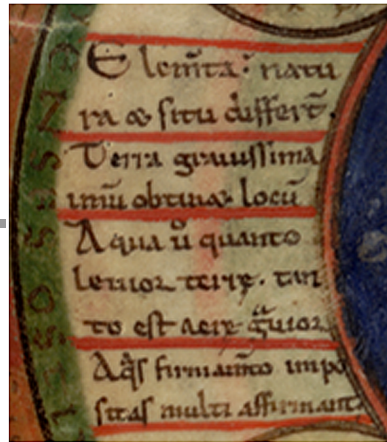 Elem̄ta: natu
ra & situ differt̄.
Terra grauissima
imū obtin& locū
Aqua ū quanto
leuior terrę. tan
to est aere g̃uior
Aq̄s firmam̄to impo
sitas multi affirmant.